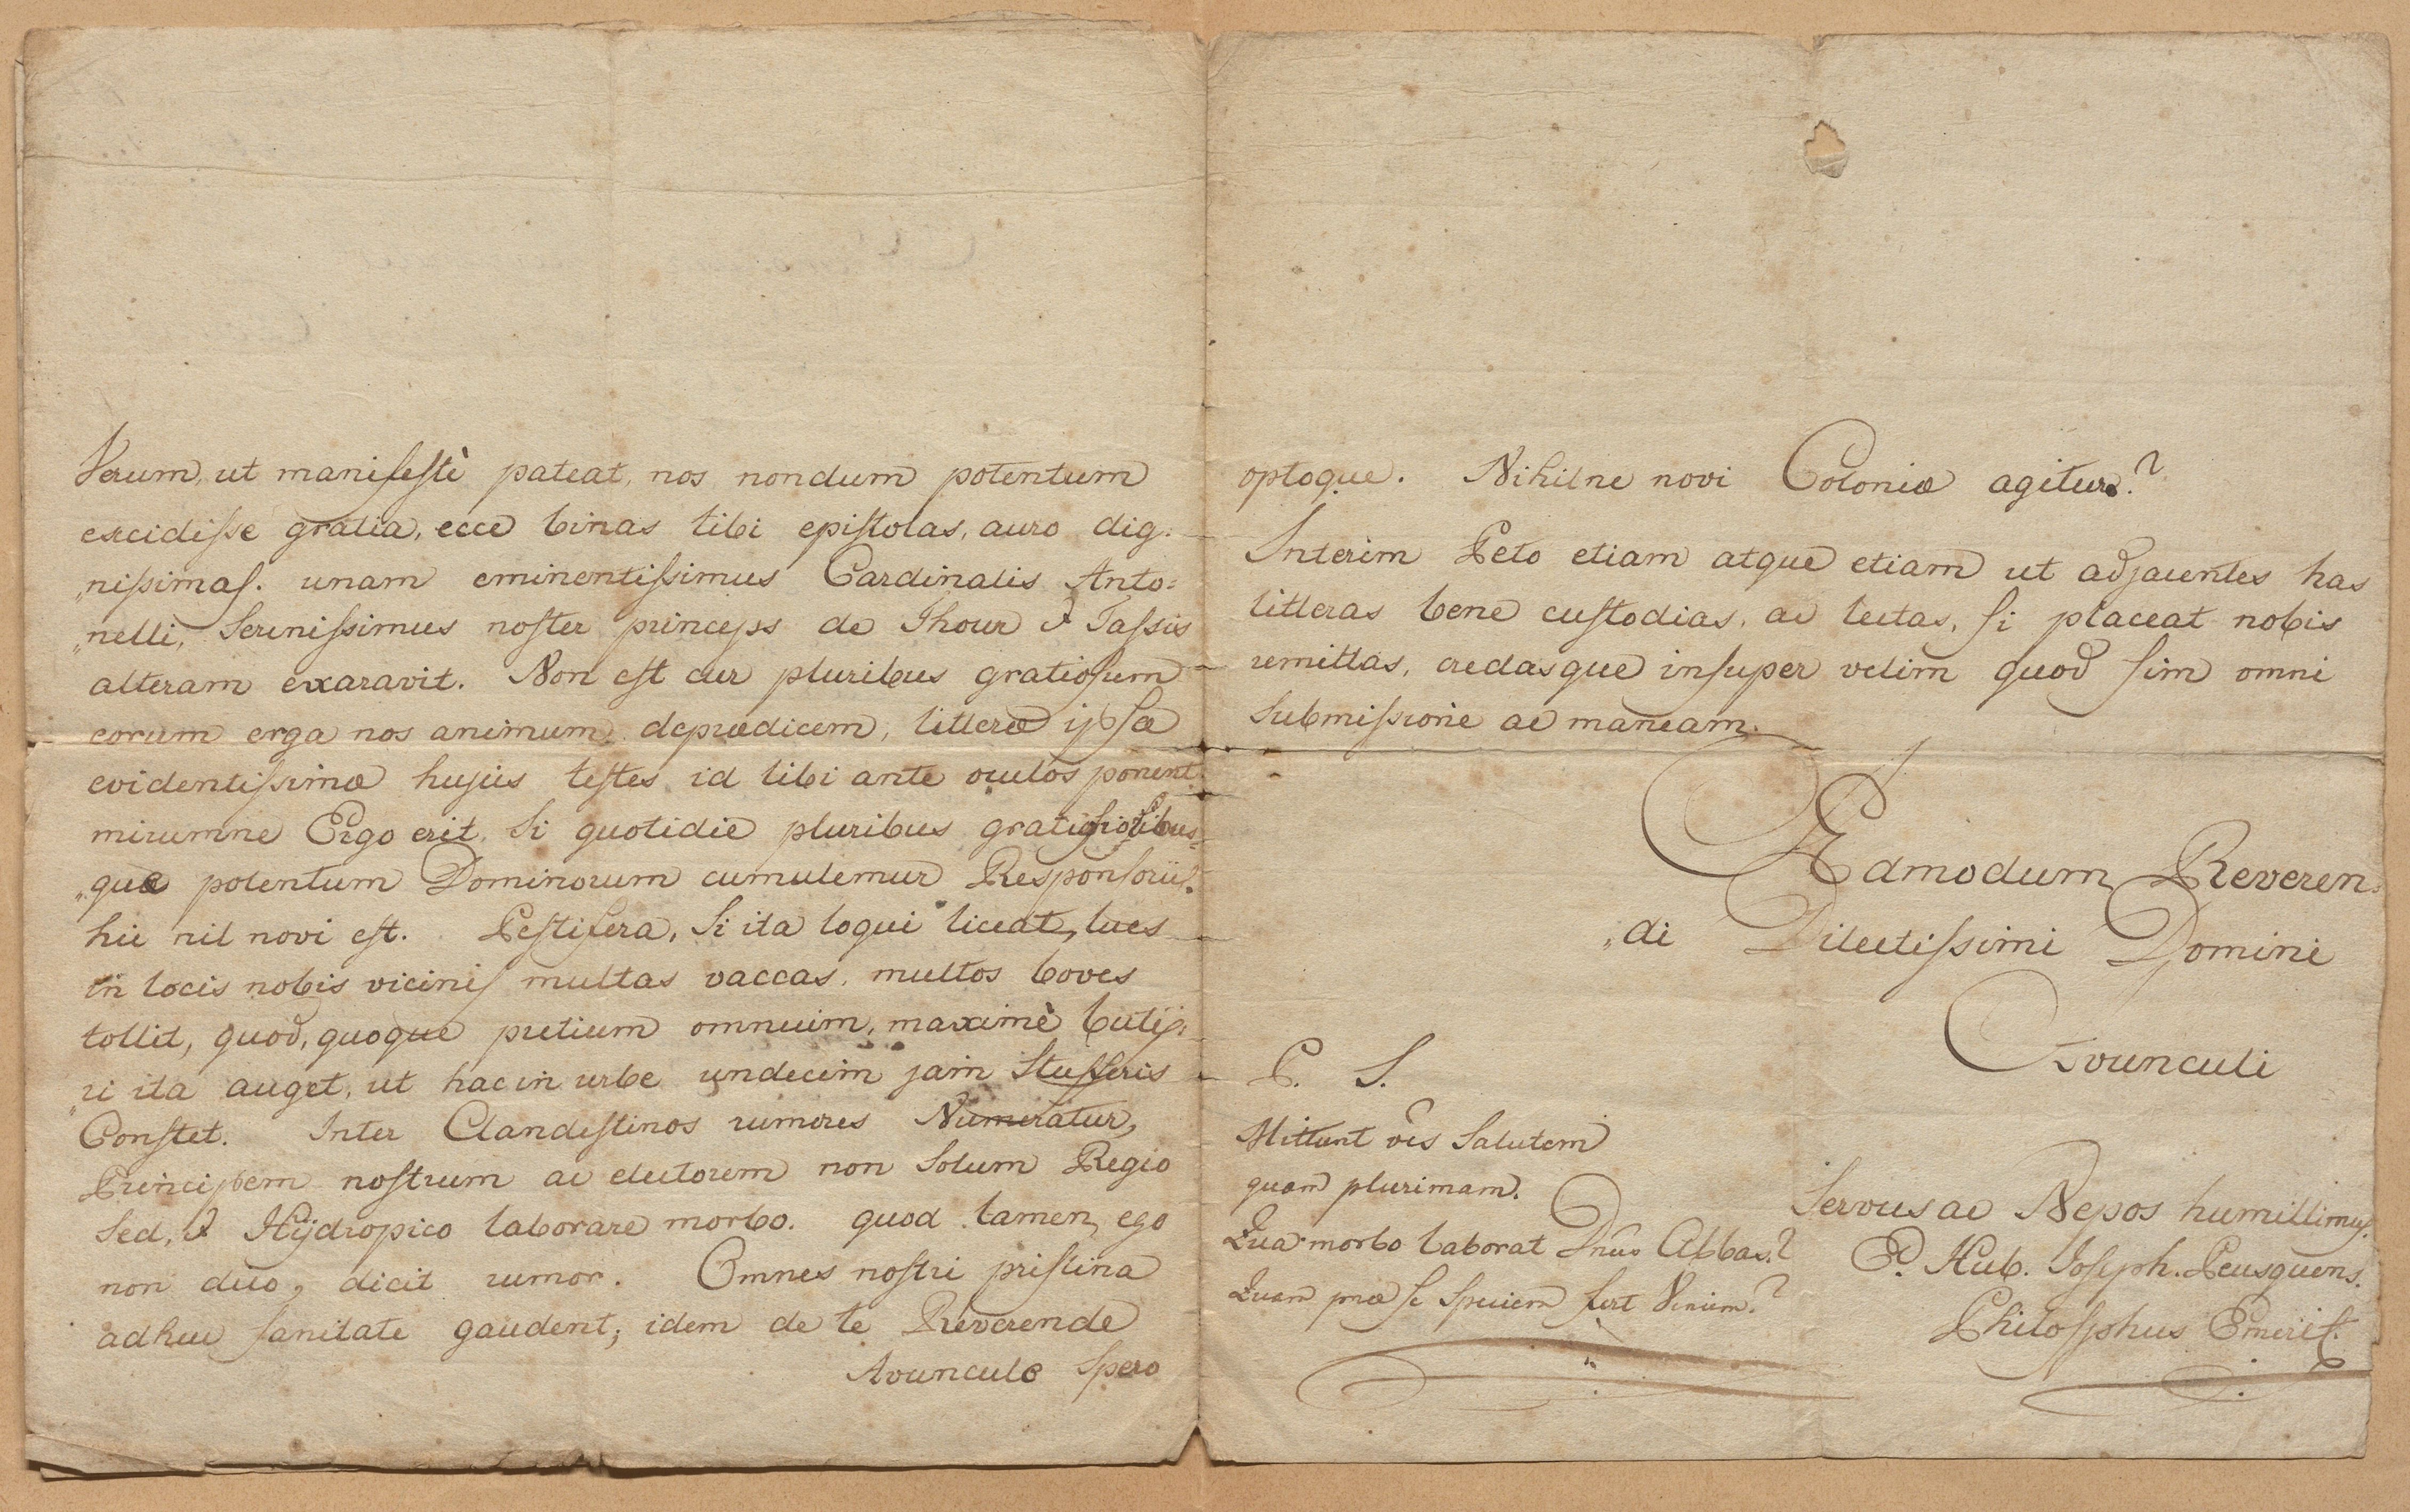 Verum, ut manifestè pateat, nos nondum potentum
excidisse gratia, ecce binas tibi epistolas, auro dig-
„nissimas. unam eminentissimus Cardinalis Anto=
„nelli, Serenissimus noster princeps de Thour & Tassis
alteram exaravit. Non est cur pluribus gratiosum
eorum erga nos animum depraedicem, litterae ipsae
evidentissimae hujus testes id tibi ante oculos ponent
mirumne Ergo erit, Si quotidie pluribus
„que potentum Dominorum cumulemur Responsoriis.
hic nil novi est. Pestifera, Si ita loqui liceat, lues
in locis nobis vicinis multas vaccas, multos boves
tollit, quod, quoque pretium omnium, maximè butÿ-
„ri ita auget, ut hac in urbe undecim jam Stufferis
Constet. Inter Clandestinos rumores Numeratur,
Principem nostrum ac electorem non Solum Regio
Sed, & Hÿdropico laborare morbo. quod tamen, ego
non duo, dicit rumor. Omnes nostri pristina
adhuc sanitate gaudent; idem de te Reverende
Avunculo Spero
optoque. Nihilne novi Coloniae agitur?
Interim Peto etiam atque etiam ut adjacentes has
litteras bene custodias, ac lectas, si placeat nobis
remittas, credasque insuper velim quod sim omni
Submissione ac maneam.
Admodum Reveren=
„di Dilectissimi Domini
Avunculi
P. S.
Mittunt oēs Salutem
quam plurimam.
Qua morbo laborat Dnūs Abbas?
Quam prae se Speciem fert Vinum?
Servus ac Nepos humillimus.
P. Hub. Joseph. Peusquens.
Philosphus Emerit.